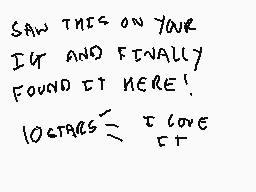 SAW THIS ON YOUR
IG AND FINALLY
FOUND IT HERE!
10 STARS I LOVE
IT